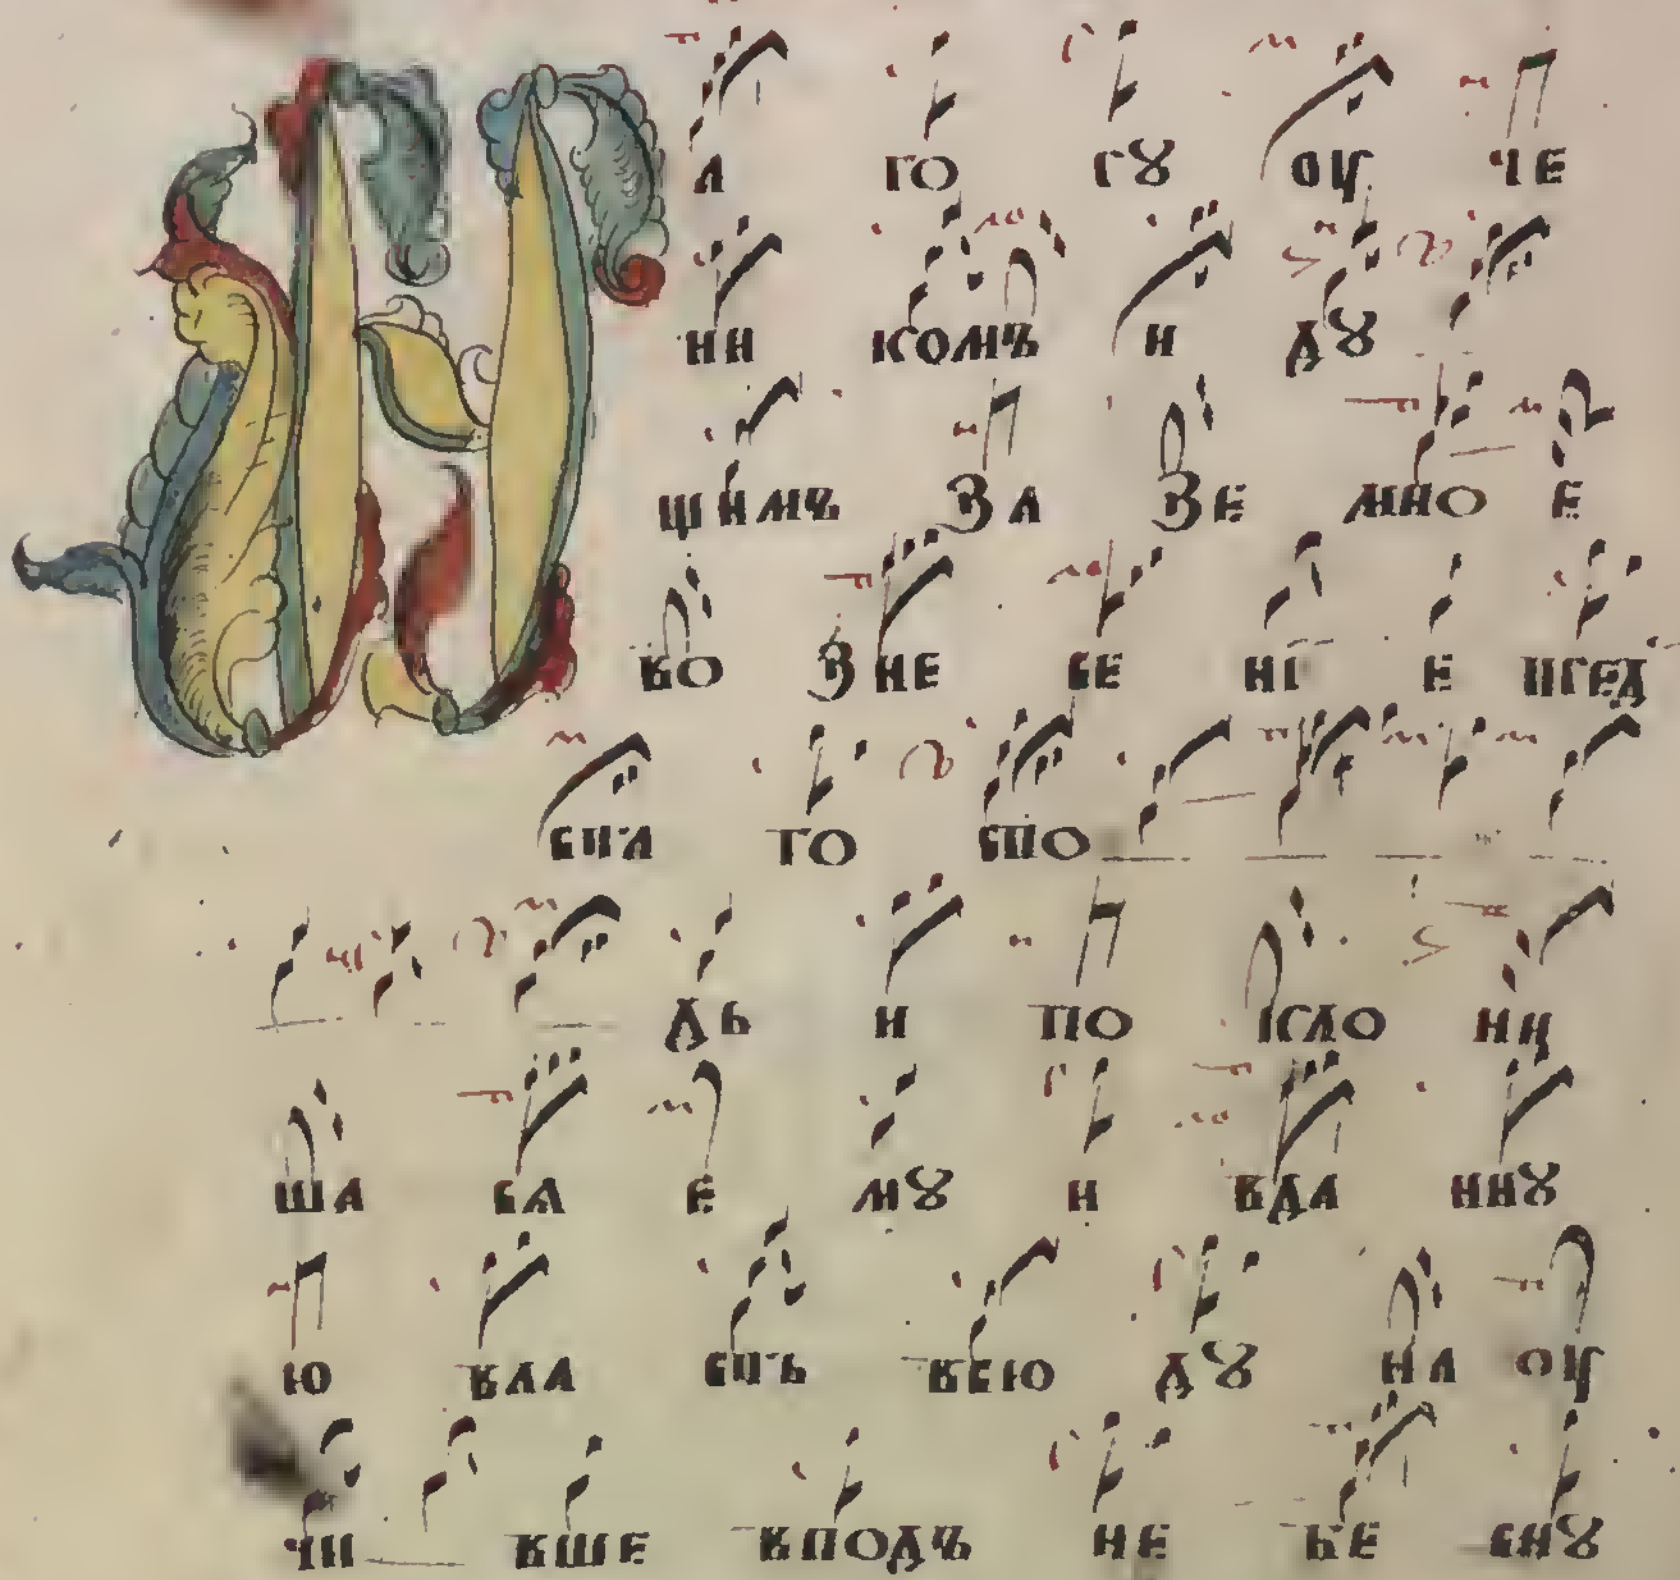 На го рꙋ оу че
ни комъ и дꙋ
щимъ за зе мно е
во зне се нї е пред
ста го спо
дь и по кло ни
ша сѧ е мꙋ и вда ннꙋ
ю вла сть всю дꙋ на оу
чи вше в под не бе снꙋ